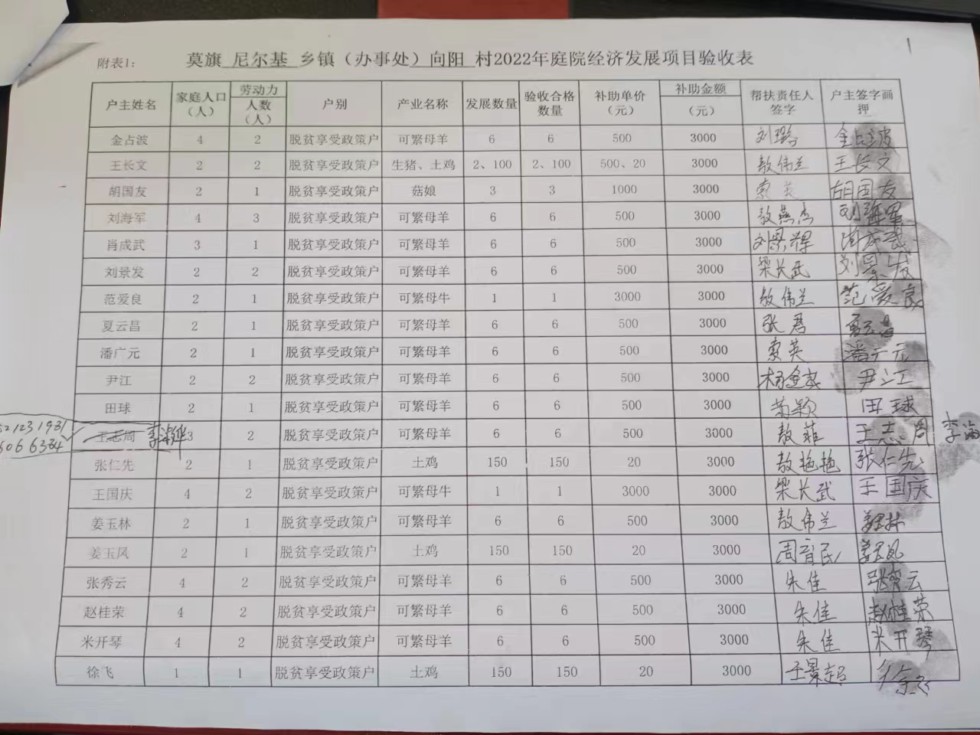 附表1:
莫旗 尼尔基 乡镇（办事处）向阳 村2022年庭院经济发展项目验收表
户主姓名 家庭人口（人） 劳动力人数（人） 户别 产业名称 发展数量 验收合格数量 补助单价（元） 补助金额（元） 帮扶责任人签字 户主签字画押
金占波 4 2 脱贫享受政策户 可繁母羊 6 6 500 3000 刘璐 金占波
王长文 2 2 脱贫享受政策户 生猪、土鸡 2、100 2、100 500、20 3000 敖伟兰 王长文
胡国友 2 1 脱贫享受政策户 菇娘 3 3 1000 3000 索英 胡国友
刘海军 4 3 脱贫享受政策户 可繁母羊 6 6 500 3000 敖燕杰 刘海军
肖成武 3 1 脱贫享受政策户 可繁母羊 6 6 500 3000
刘景发 2 2 脱贫享受政策户 可繁母羊 6 6 500 3000 梁长武 刘景发
范爱良 2 1 脱贫享受政策户 可繁母牛 1 1 3000 3000 敖伟兰 范爱良
夏云昌 2 1 脱贫享受政策户 可繁母羊 6 6 500 3000 张君 夏云昌
潘广元 2 1 脱贫享受政策户 可繁母羊 6 6 500 3000 索英 潘广元
尹江 2 2 脱贫享受政策户 可繁母羊 6 6 500 3000 尹江
田球 2 1 脱贫享受政策户 可繁母羊 6 6 500 3000 苗颖 田球
王志周 3 2 脱贫享受政策户 可繁母羊 6 6 500 3000 敖菲 王志周
张仁先 2 1 脱贫享受政策户 土鸡 150 150 20 3000 敖艳艳 张仁先
王国庆 4 2 脱贫享受政策户 可繁母牛 1 1 3000 3000 梁长武 王国庆
姜玉林 2 1 脱贫享受政策户 可繁母羊 6 6 500 3000 敖伟兰 姜玉林
姜玉凤 2 1 脱贫享受政策户 土鸡 150 150 20 3000 周音民 姜玉凤
张秀云 4 2 脱贫享受政策户 可繁母羊 6 6 500 3000 朱佳 张秀云
赵桂荣 4 2 脱贫享受政策户 可繁母羊 6 6 500 3000 朱佳 赵桂荣
米开琴 4 2 脱贫享受政策户 可繁母羊 6 6 500 3000 朱佳 米开琴
徐飞 1 1 脱贫享受政策户 土鸡 150 150 20 3000 王景超 徐飞